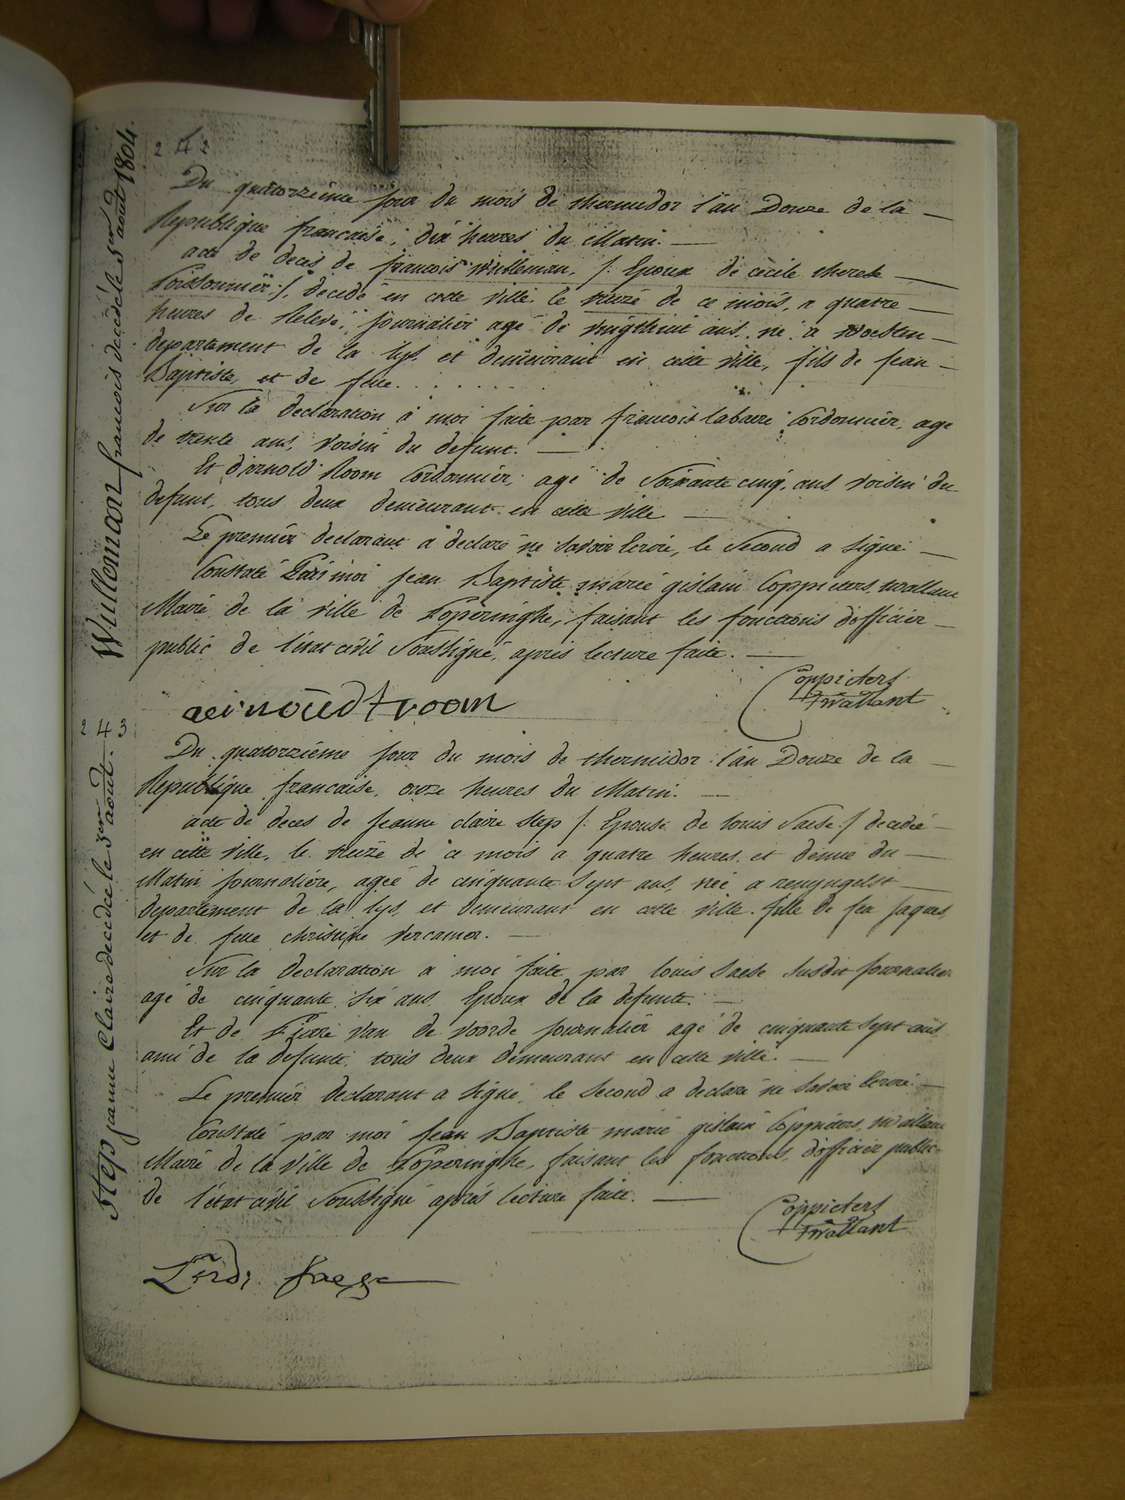 242
Du quatorzième jour du mois de thermidor l'an Douze de la
Republique francaise, dix heures du Matin.
acte de deces de francois Wulleman, /: Epoux de cecile therese
Poissonnier :/, decedé en cette ville le treize de ce mois, a quatre
heures de Relevé, journalier agé de vingthuit ans, né a Woesten
departement de la Lys et demeurant en cette ville, fils de Jean
Baptiste, et de feue . . . . . .
Sur la declaration à moi faite par francois labaere Cordonnier, agé
de trente ans, Voisin du defunt.
Et d'arnold Room Cordonnier, agé de Soixante cinq ans voisin du
defunt, tous deux demeurant en cette ville
Le premier declarant a declaré ne savoir Ecrire, le Second a signé.
Constaté Par moi Jean Baptiste marie gislain Coppieters Wallant
Maire de la Ville de Poperinghe, faisant les fonctions d'officier
public de l'état civil Soussigné, après lecture faite.
Coppieters
Wallant
aernoudt room
Wulleman francois decedé le 1er août 1804.
243
Du quatorzième jour du mois de thermidor l'an Douze de la
Republique francaise, onze heures du Matin.
acte de deces de jeanne claire Step /: Epouse de Louis Saese :/ decedée
en cette ville, le treize de ce mois a quatre heures et demie du
Matin journalière, agée de cinquante Sept ans, née a renyngelst
departement de la Lys, et demeurant en cette ville. fille de feu Jaques
et de feue christine Vercamer.
Sur la declaration a moi faite par louis Saese Susdit journalier
agé de cinquante Six ans Epoux de la defunte.
Et de Pierre Van de Voorde journalier agé de cinquante Sept ans
ami de la defunte, tous deux demeurant en cette ville.
Le premier declarant a signé, le Second a declaré ne savoir Ecrire.
Constaté par moi Jean Baptiste marie gislain Coppieters Wallant
Maire de la Ville de Poperinghe, faisant les fonctions d'officier public
de l'état civil Soussigné après lecture faite.
Coppieters
Wallant
Step jeanne Claire decedée le 1er août.